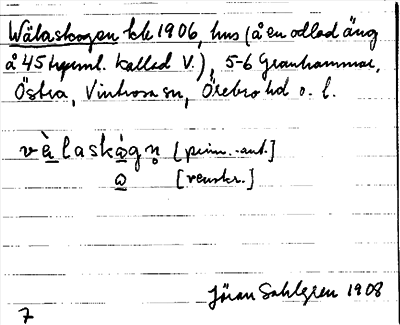 Wälaskogen kk 1906, hus (å en odlad äng
å 45 kpml. kallad V.), 5-6 Granhammar,
Östra, Vintrosa sn, Örebro hd o. l.
vὲlaskògn̥ [prim.-ant.]
ω [renskr.]
Jöran Sahlgren 1908
7